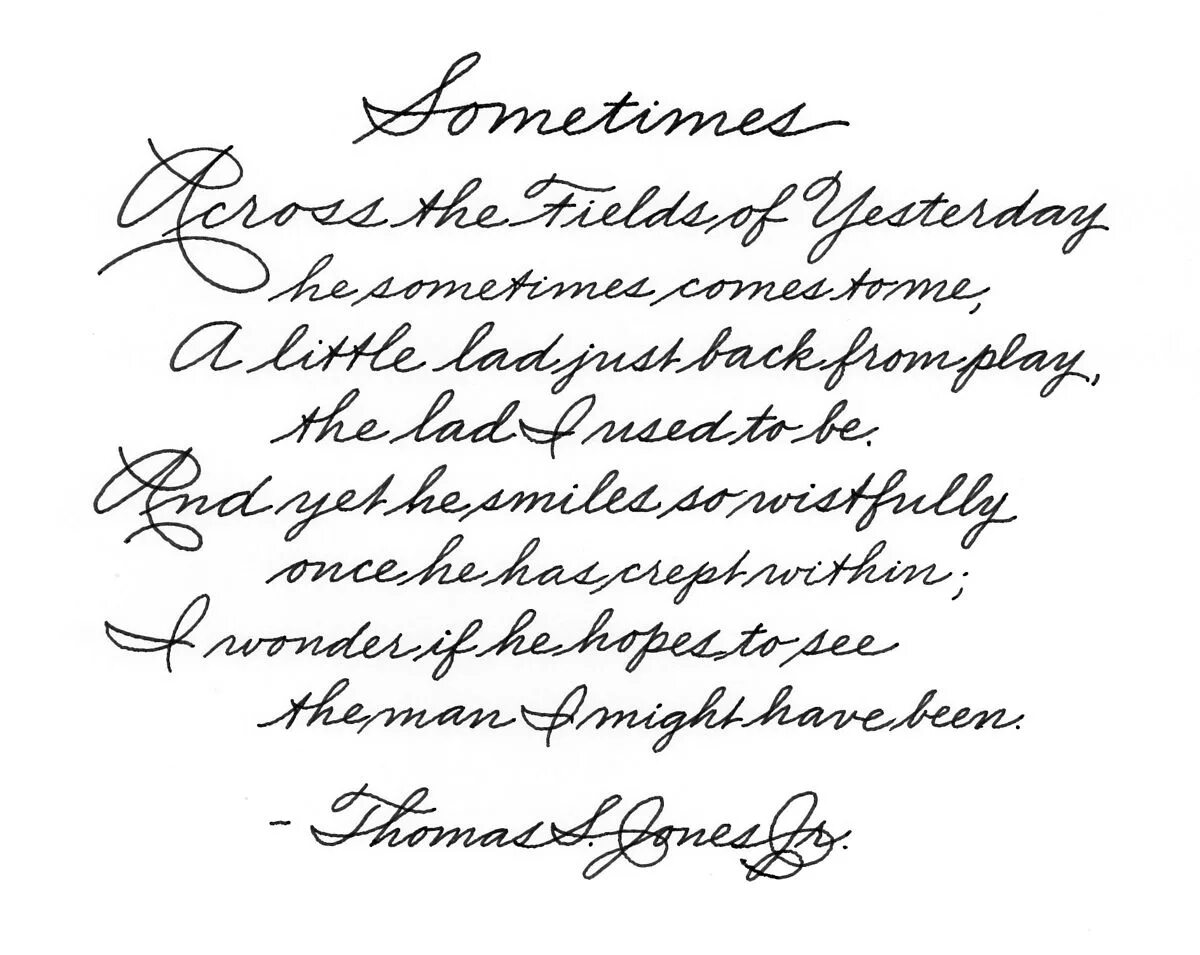 Sometimes
Across the Fields of Yesterday
he sometimes comes to me,
A little lad just back from play,
the lad I used to be.
And yet he smiles so wistfully
once he has crept within;
I wonder if he hopes to see
the man I might have been.
- Thomas S. Jones Jr.